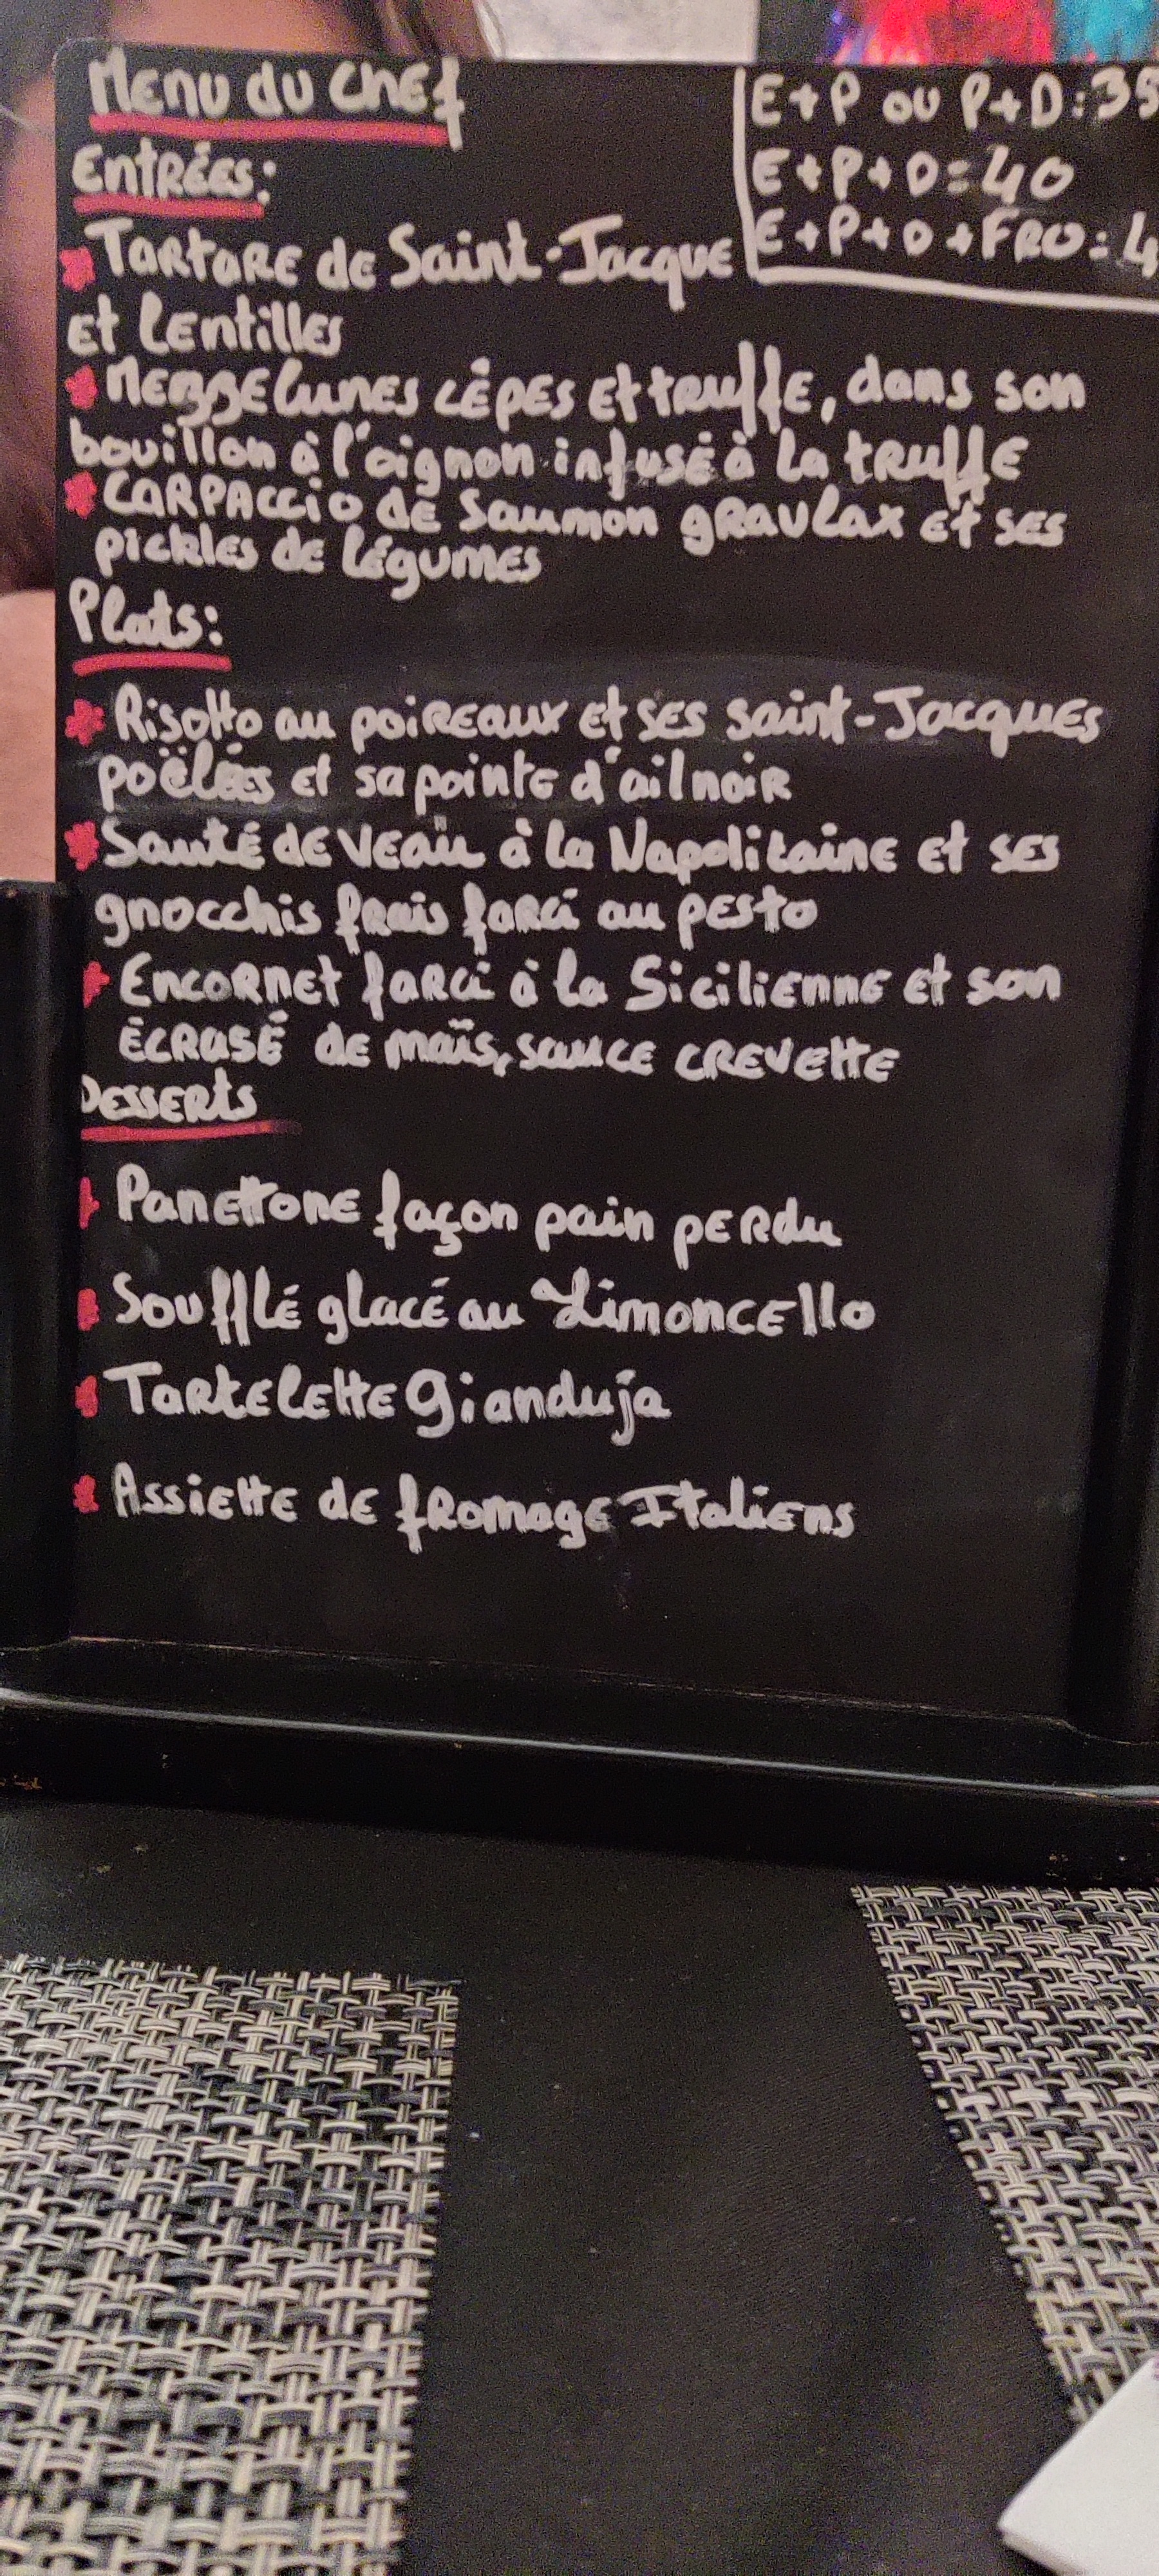 Menu du Chef
E+P ou P+D:35
E+P+D=40
E+P+D+FRO:4
Entrées:
Tartare de Saint-Jacque
et lentilles
Mezzelunes cèpes et truffe, dans son
bouillon à l'oignon infusé à la truffe
Carpaccio de saumon gravlax et ses
pickles de légumes
Plats:
Risotto au poireaux et ses saint-Jacques
poëlées et sa pointe d'ail noir
Sauté de veau à la Napolitaine et ses
gnocchis frais farci au pesto
Encornet farci à la Sicilienne et son
écrasé de maïs, sauce crevette
Desserts
Panettone façon pain perdu
Soufflé glacé au Limoncello
Tartelette Gianduja
Assiette de fromage Italiens